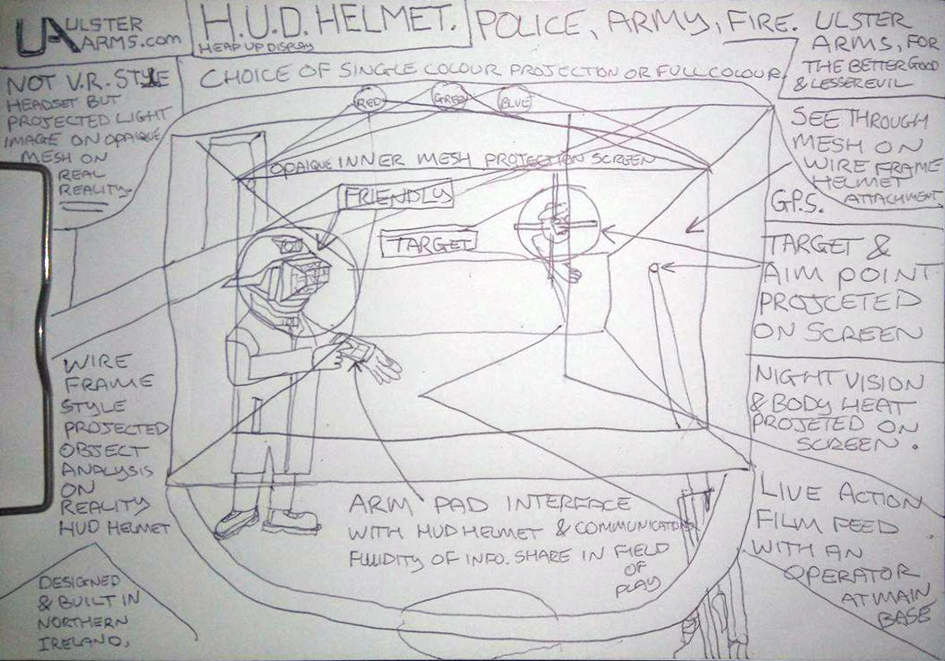 UA ULSTER
ARMS.com
H.U.D. HELMET.
HEAP UP DISPLAY
POLICE, ARMY, FIRE.
ULSTER
ARMS, FOR
THE BETTER GOOD
& LESSER EVIL
NOT V.R. STYLE
HEADSET BUT
PROJECTED LIGHT
IMAGE ON OPAQUE
MESH ON
REAL
REALITY
CHOICE OF SINGLE COLOUR PROJECTION OR FULL COLOUR.
RED
GREO
BLUE
OPAQUE INNER MESH PROJECTION SCREEN
FRIENDLY
TARGET
SEE THROUGH
MESH ON
WIRE FRAME
HELMET
ATTACHMENT.
G.P.S.
TARGET &
AIM POINT
PROJCETED
ON SCREEN
NIGHT VISION
& BODY HEAT
PROJETED ON
SCREEN.
LIVE ACTION
FILM FEED
WITH AN
OPERATOR
AT MAIN
BASE
WIRE
FRAME
STYLE
PROJECTED
OBJECT
ANALYSIS
ON
REALITY
HUD HELMET
ARM PAD INTERFACE
WITH HUD HELMET & COMMUNICATION
FLUIDITY OF INFO. SHARE IN FIELD
OF
PLAY
DESIGNED
& BUILT IN
NORTHERN
IRELAND,